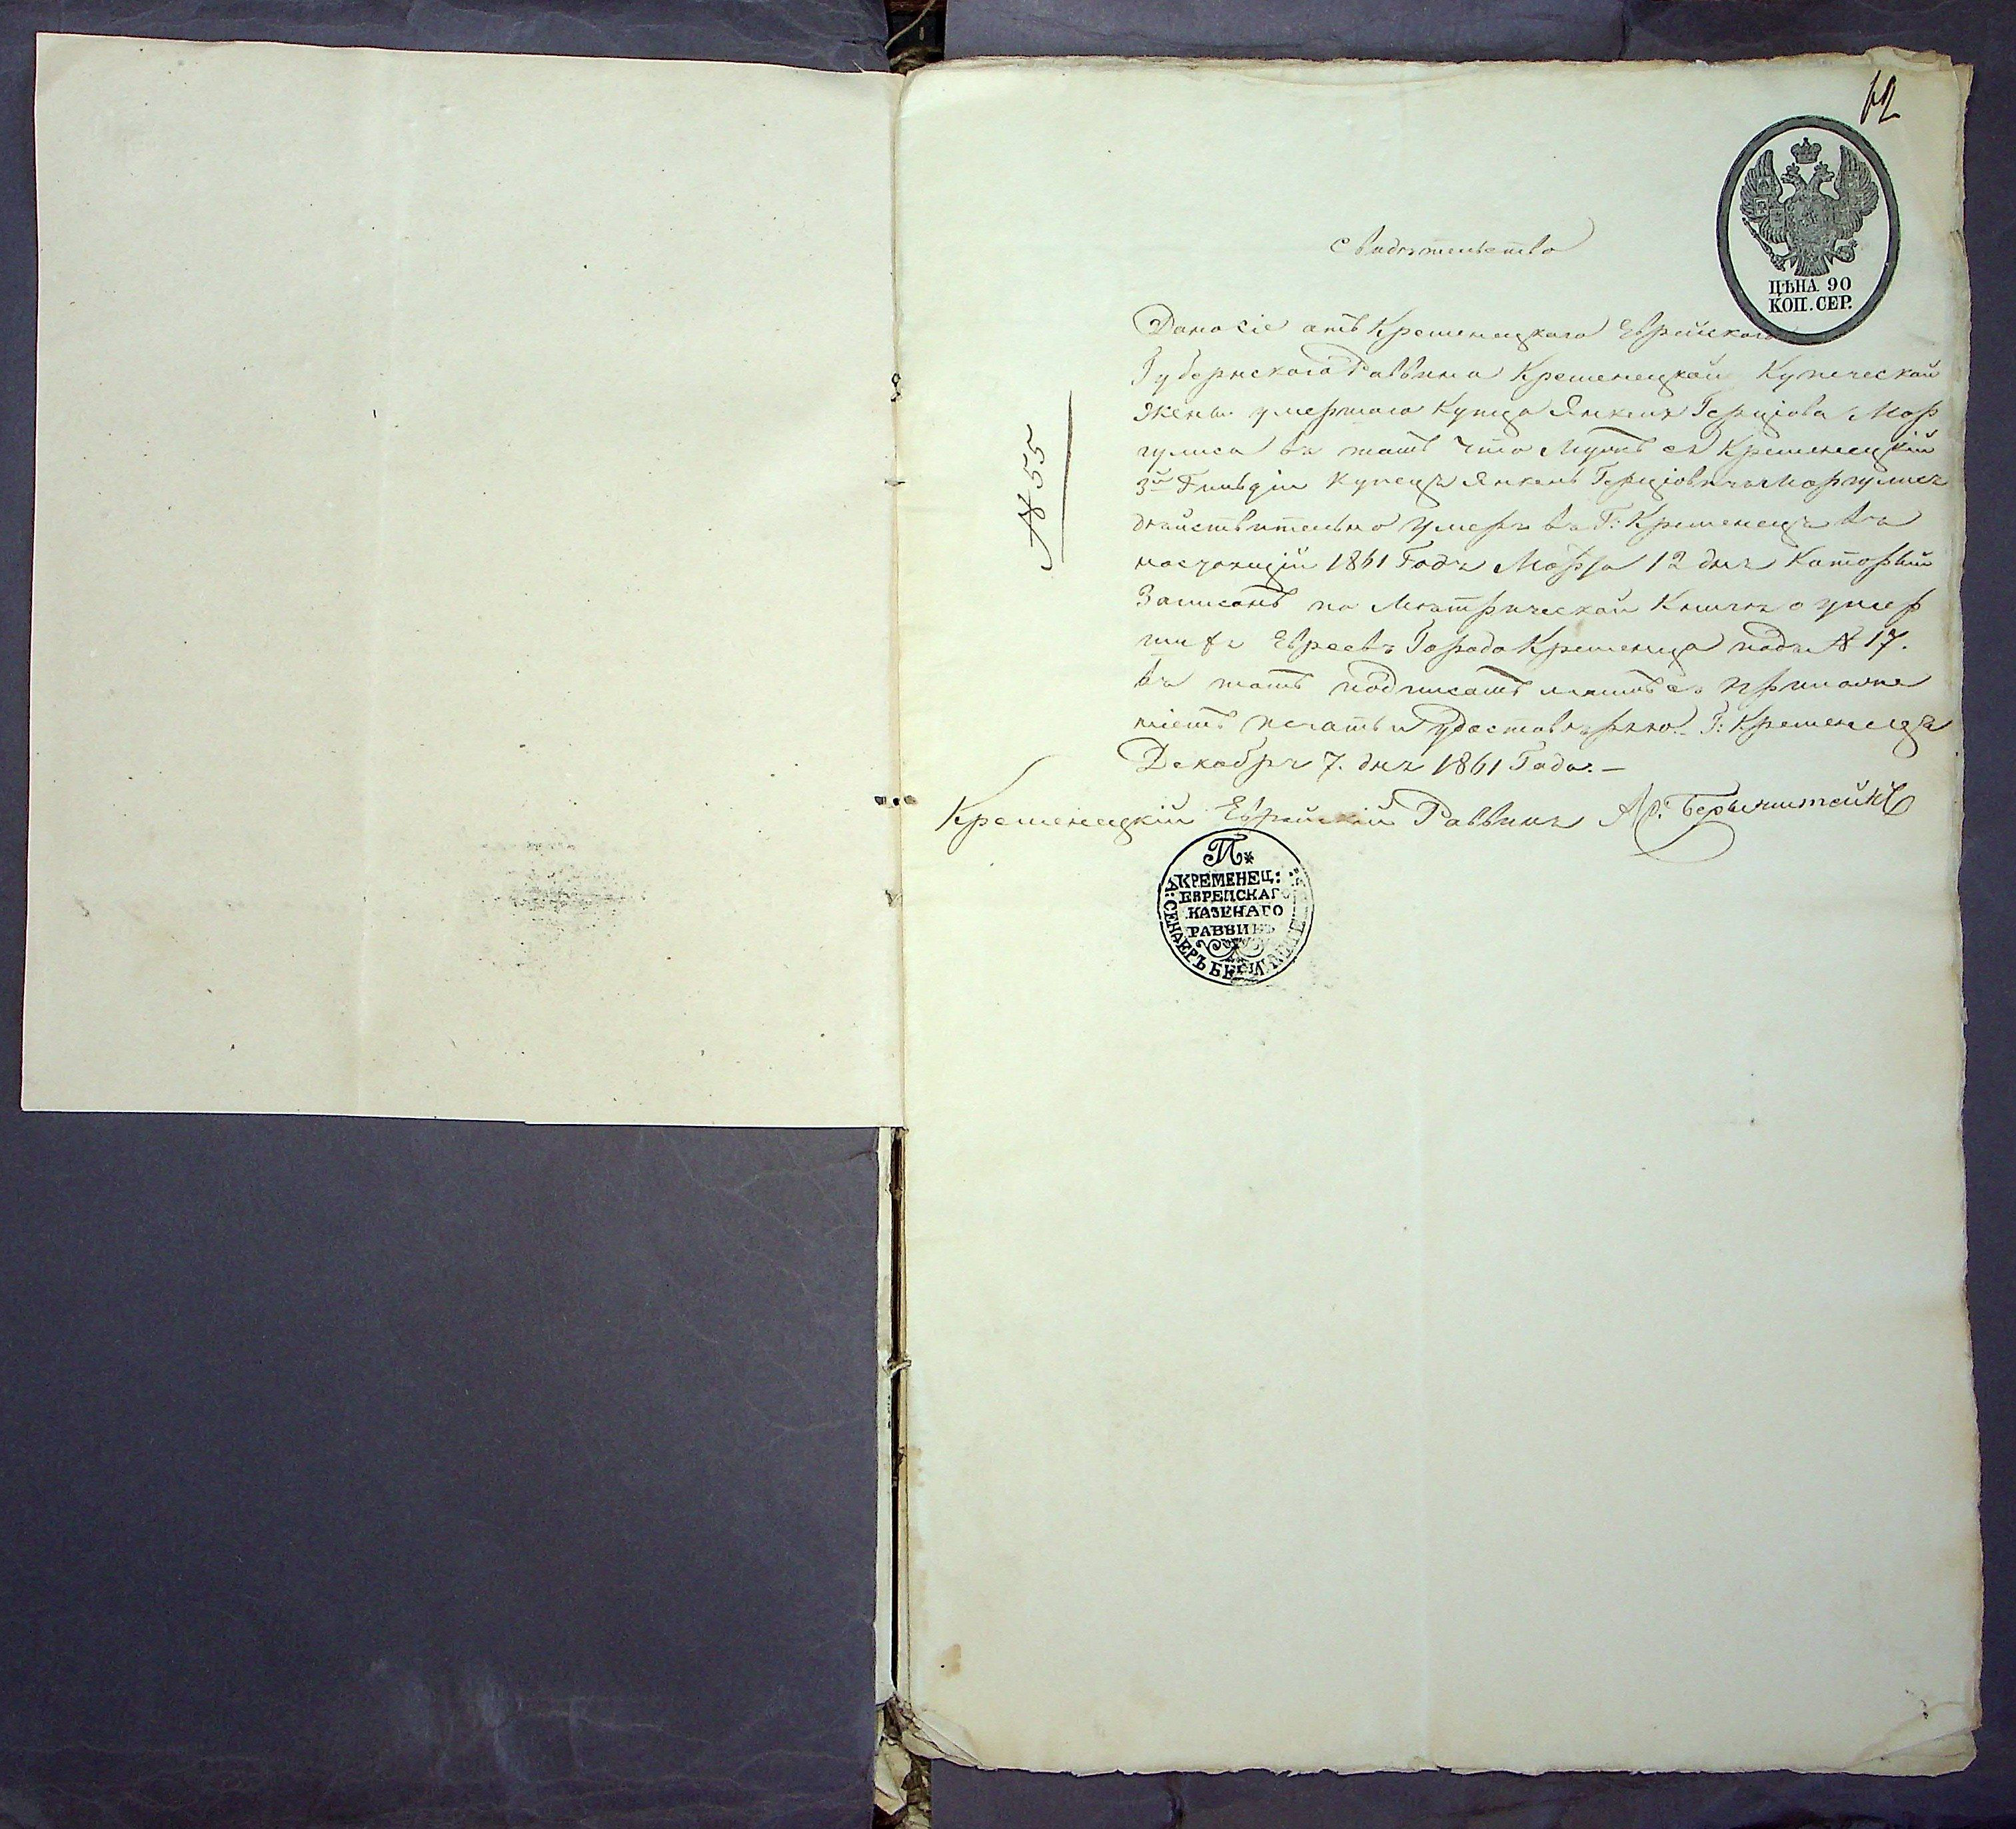 62
ЦѢНА 90
КОП. СЕР.
Свидѣтельство
Дано сіе отъ Кременецкаго Еврейскаго
Губернскаго Раввина Кременецкой Купеческой
жены умершаго Купца Янкеля Герціова Мар
гулиса въ томъ что Мужъ ея Кременецкій
3й Гильдіи Купецъ Янкель Герціовичъ Маргулисъ
дѣйствительно умеръ въ Г: Кременецѣ въ
настоящій 1861 Годъ Марта 12 дня Который
Записанъ по Метрической Книгѣ о умер
шихъ Евреевъ Города Кременца подъ № 17.
въ томъ подписомъ моимъ съ приложе
ніемъ печати удостовѣряю. Г: Кременецъ
Декабря 7. дня 1861 Года. —
Кременецкій Еврейскій Раввинъ Ар. Беренштейнъ
№ 55
П*
КРЕМЕНЕЦ:
ЕВРЕЙСКАГО
КАЗЕНАГО
РАВВИНЪ